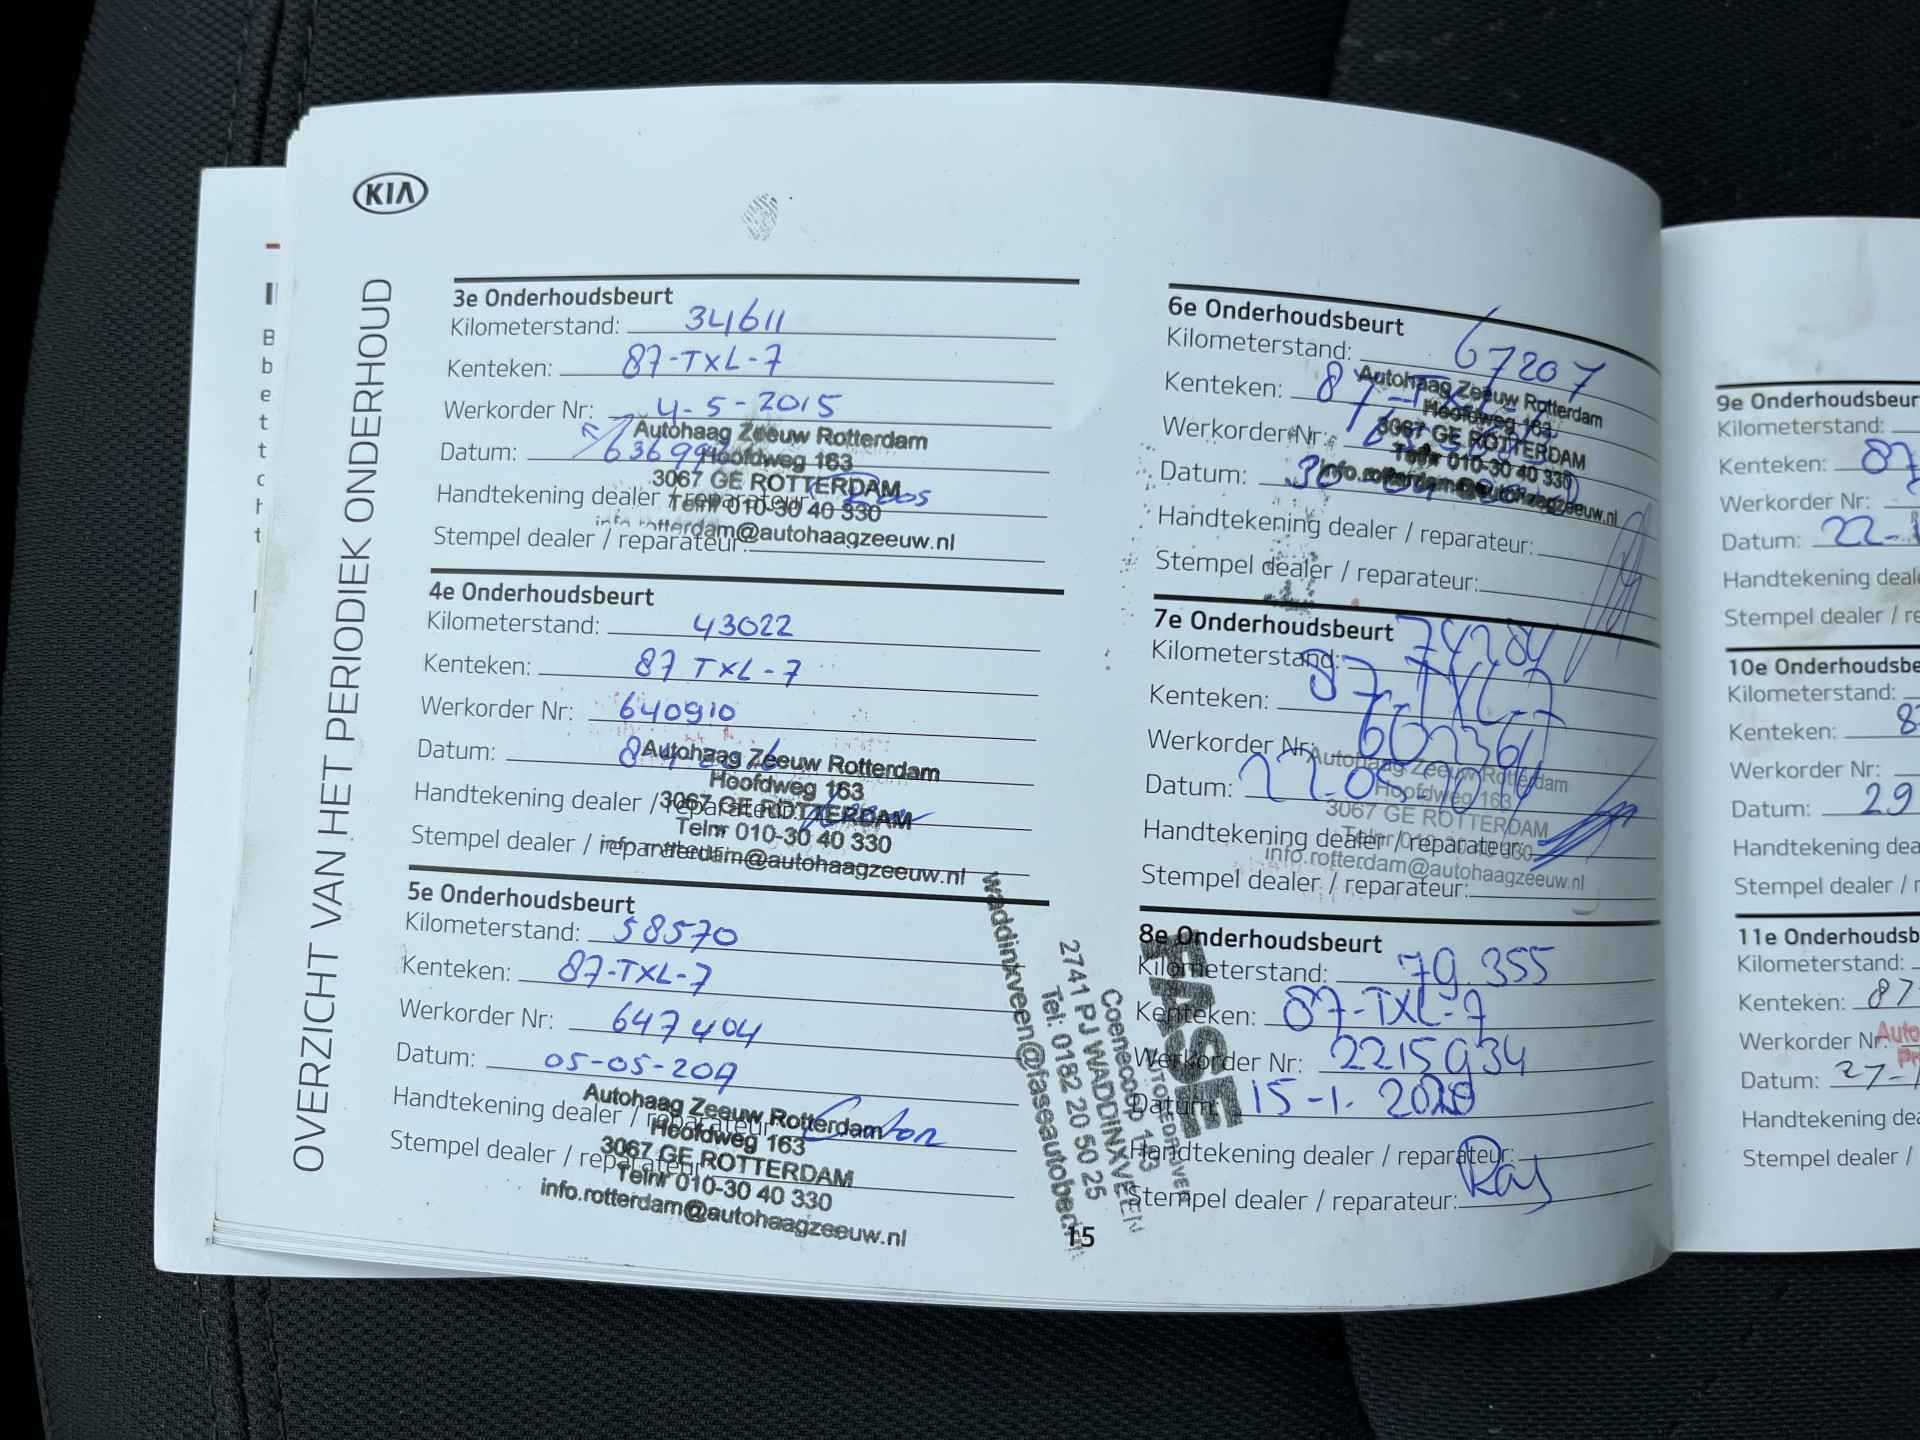 KIA
OVERZICHT VAN HET PERIODIEK ONDERHOUD
3e Onderhoudsbeurt
Kilometerstand: 34611
Kenteken: 87-TXL-7
Werkorder Nr: 4-5-2015
Datum: 63699
Handtekening dealer / reparateur:
Stempel dealer / reparateur:
Autohaag Zeeuw Rotterdam
Hoofdweg 163
3067 GE ROTTERDAM
Telnr 010-30 40 330
info.rotterdam@autohaagzeeuw.nl
4e Onderhoudsbeurt
Kilometerstand: 43022
Kenteken: 87 TXL-7
Werkorder Nr: 640910
Datum:
Handtekening dealer / reparateur:
Stempel dealer / reparateur:
Autohaag Zeeuw Rotterdam
Hoofdweg 163
3067 GE ROTTERDAM
Telnr 010-30 40 330
info.rotterdam@autohaagzeeuw.nl
5e Onderhoudsbeurt
Kilometerstand: 58570
Kenteken: 87-TXL-7
Werkorder Nr: 647404
Datum: 05-05-2017
Handtekening dealer / reparateur:
Stempel dealer / reparateur:
Autohaag Zeeuw Rotterdam
Hoofdweg 163
3067 GE ROTTERDAM
Telnr 010-30 40 330
info.rotterdam@autohaagzeeuw.nl
6e Onderhoudsbeurt
Kilometerstand: 67207
Kenteken:
Werkorder Nr:
Datum:
Handtekening dealer / reparateur:
Stempel dealer / reparateur:
Autohaag Zeeuw Rotterdam
Hoofdweg 163
3067 GE ROTTERDAM
Telnr 010-30 40 330
info.rotterdam@autohaagzeeuw.nl
7e Onderhoudsbeurt
Kilometerstand: 74284
Kenteken: 87-TXL-7
Werkorder Nr:
Datum:
Handtekening dealer / reparateur:
Stempel dealer / reparateur:
Autohaag Zeeuw Rotterdam
Hoofdweg 163
3067 GE ROTTERDAM
Telnr 010-30 40 330
info.rotterdam@autohaagzeeuw.nl
8e Onderhoudsbeurt
Kilometerstand: 79.355
Kenteken: 87-TXL-7
Werkorder Nr: 2215934
Datum: 15-1. 2020
Handtekening dealer / reparateur:
Stempel dealer / reparateur:
FASE
Coenecoop
2741 PJ WADDINXVEEN
Tel: 0182 20 50 25
15
9e Onderhoudsbeur
Kilometerstand:
Kenteken: 87
Werkorder Nr:
Datum: 22-
Handtekening deal
Stempel dealer / re
10e Onderhoudsbe
Kilometerstand:
Kenteken: 8
Werkorder Nr:
Datum: 29
Handtekening dea
Stempel dealer / r
11e Onderhoudsb
Kilometerstand:
Kenteken: 87
Werkorder Nr:
Auto
Datum: 27-
Handtekening dea
Stempel dealer /